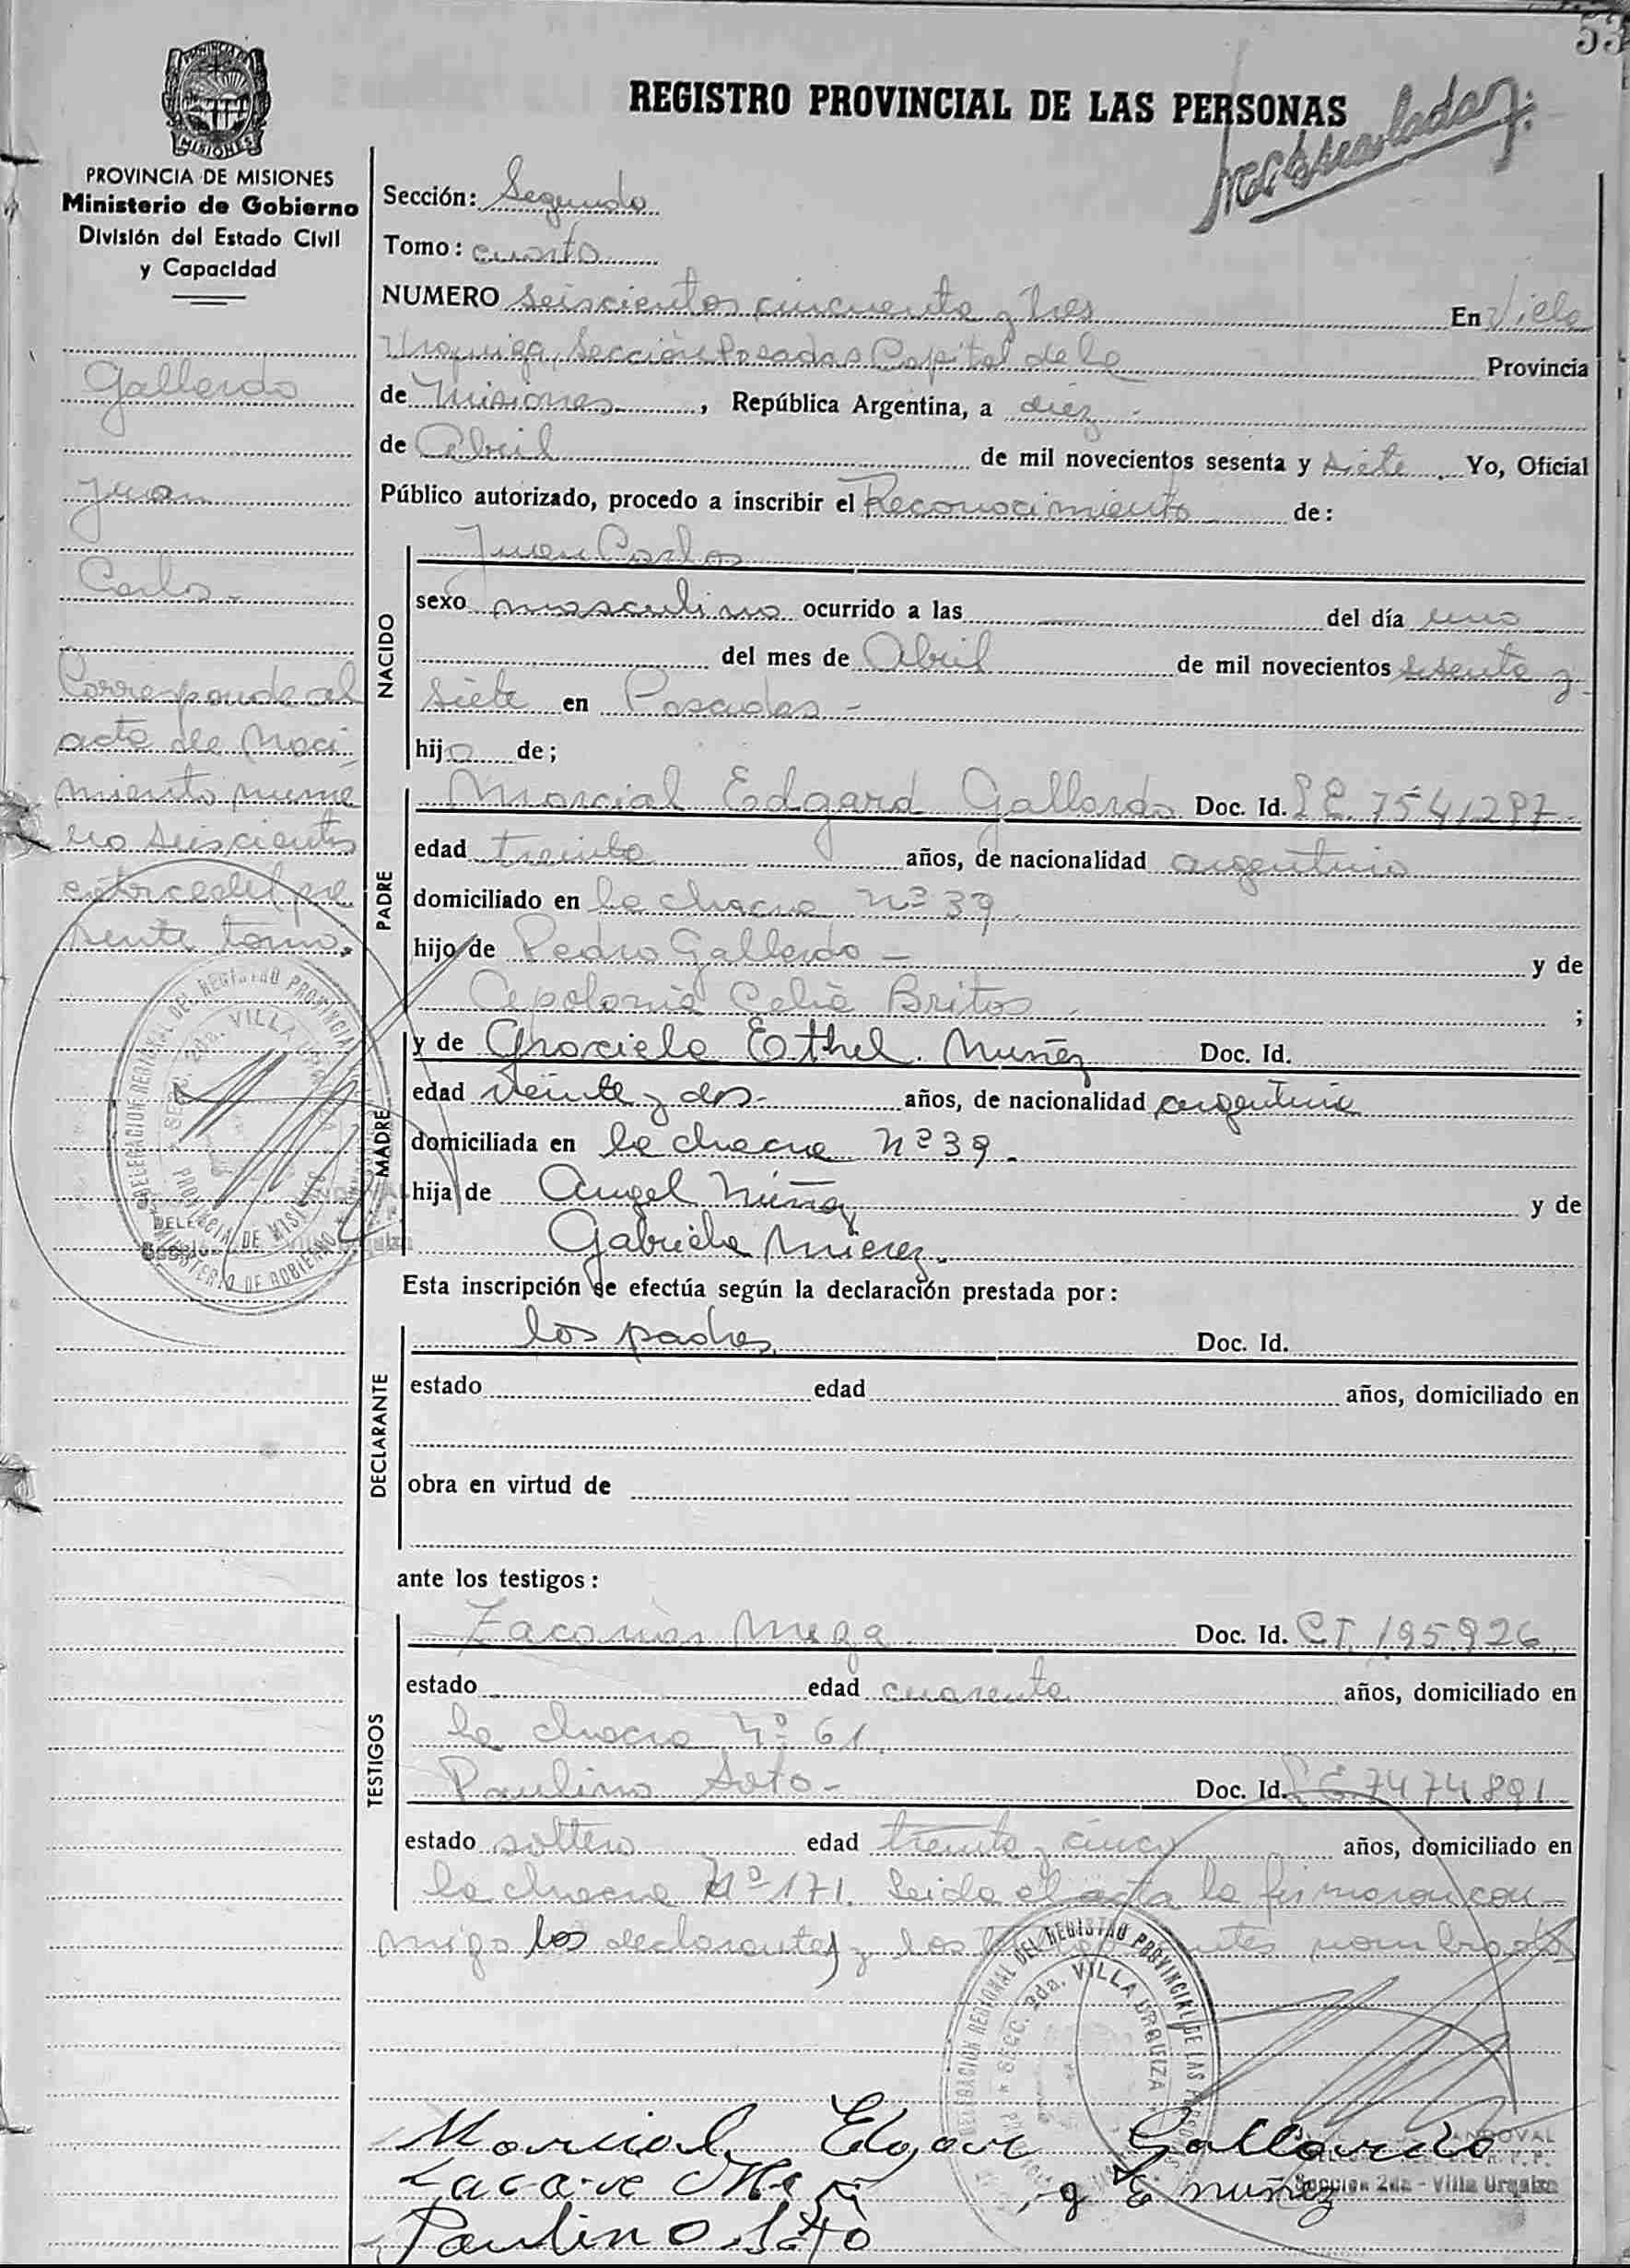 53
REGISTRO PROVINCIAL DE LAS PERSONAS
PROVINCIA DE MISIONES
Ministerio de Gobierno
División del Estado Civil
y Capacidad
Gallardo
Juan
Carlos -
Corresponde al
acta de naci
miento núme
ro seiscientos
catorce del pre
sente tomo.
Sección: Segunda
Tomo: cuarto
NUMERO seiscientos cincuenta y tres En Villa
Urquiza, Sección Posadas Capital de la Provincia
de Misiones, República Argentina, a diez -
de Abril de mil novecientos sesenta y siete Yo, Oficial
Público autorizado, procedo a inscribir el Reconocimiento de:
NACIDO
Juan Carlos
sexo masculino ocurrido a las del día uno
del mes de Abril de mil novecientos sesenta y
siete en Posadas -
hijo de;
PADRE
Marcial Edgard Gallardo Doc. Id. L.E. 7541297-
edad treinta años, de nacionalidad argentino
domiciliado en la chacra nº 39
hijo de Pedro Gallardo - y de
Apolonia Celia Britos ;
MADRE
y de Graciela Ethel Nuñez Doc. Id.
edad veinte y dos- años, de nacionalidad argentina
domiciliada en la chacra nº 39 -
hija de Angel Núñez y de
Gabriela Mierez
Esta inscripción se efectúa según la declaración prestada por:
DECLARANTE
los padres Doc. Id.
estado edad años, domiciliado en
obra en virtud de
ante los testigos:
TESTIGOS
Zacarías Meza Doc. Id. C.I. 195.926
estado edad cuarenta años, domiciliado en
la chacra nº 61
Paulino Soto - Doc. Id. L.E 7474891
estado soltero edad treinta y cinco años, domiciliado en
la chacra Nº 171. Leida el acta la firmaron con-
migo los declarantes y los nombrados
DELEGACION REGIONAL DEL REGISTRO PROVINCIAL DE LAS
SECC. 2da. VILLA URQUIZA
PROVINCIA DE MISIONES
MINISTERIO DE GOBIERNO
Marcial Edgar Gallardo
G E Nuñez
Paulino Soto
Seccion 2da - Villa Urquiza